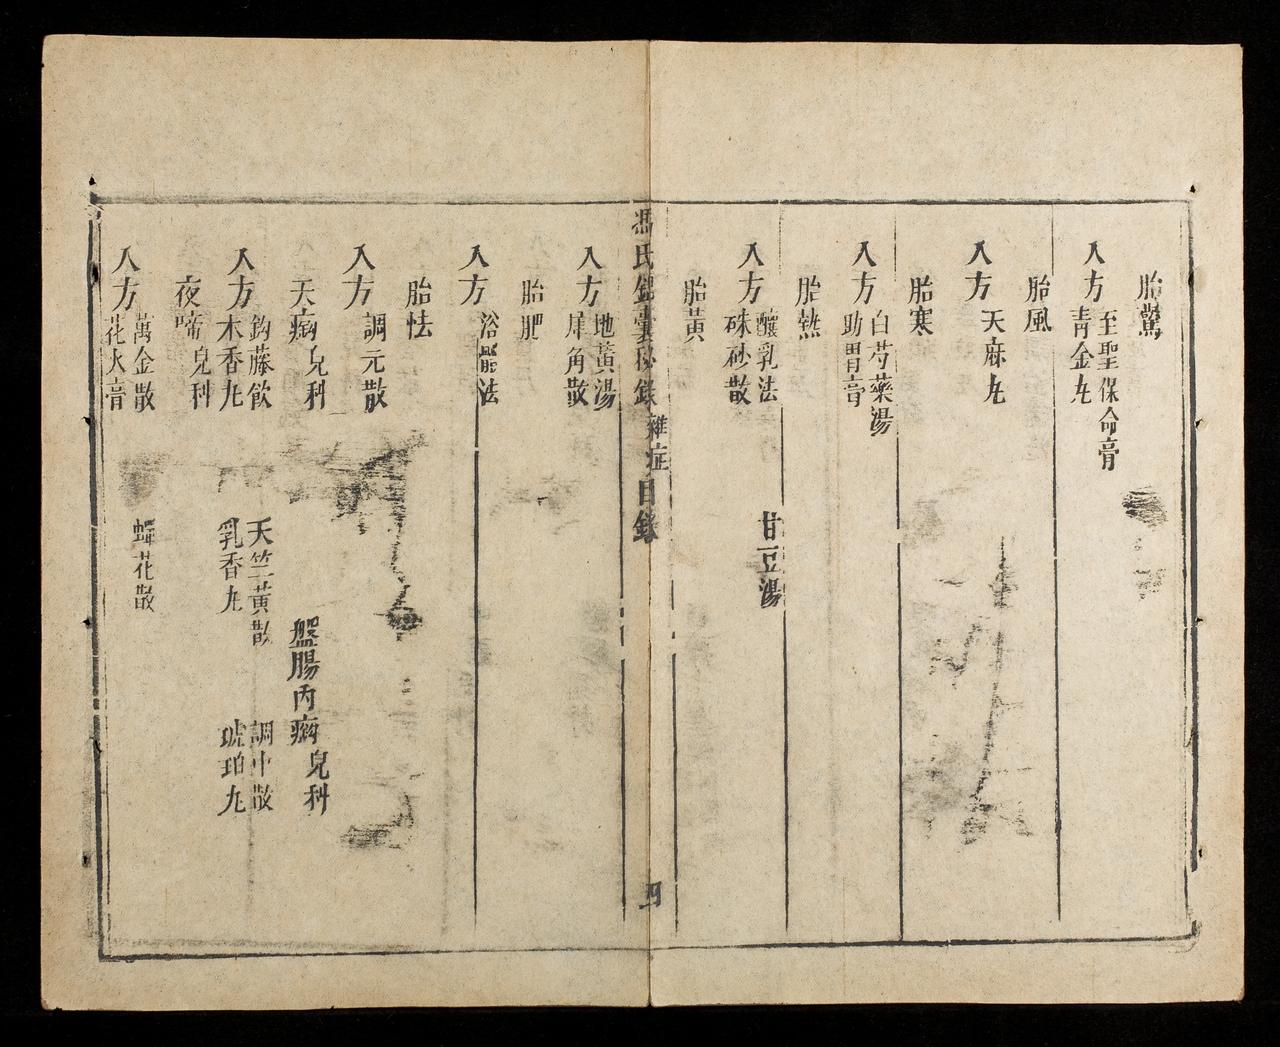 胎驚
入方 至聖保命膏
青金丸
胎風
入方 天麻丸
胎寒
入方 白芍藥湯
助胃膏
胎熱
入方 釀乳法 甘豆湯
硃砂散
胎黃
馮氏錦囊秘錄 雜症目錄 四
入方 地黃湯
犀角散
胎肥
入方 浴體法
胎怯
入方 調元散
天瘹 兒科 盤腸內瘹 兒科
入方 鈎藤飲 天竺黃散 調中散
木香丸 乳香丸 琥珀丸
夜啼 兒科
入方 萬金散 蟬花散
花火膏